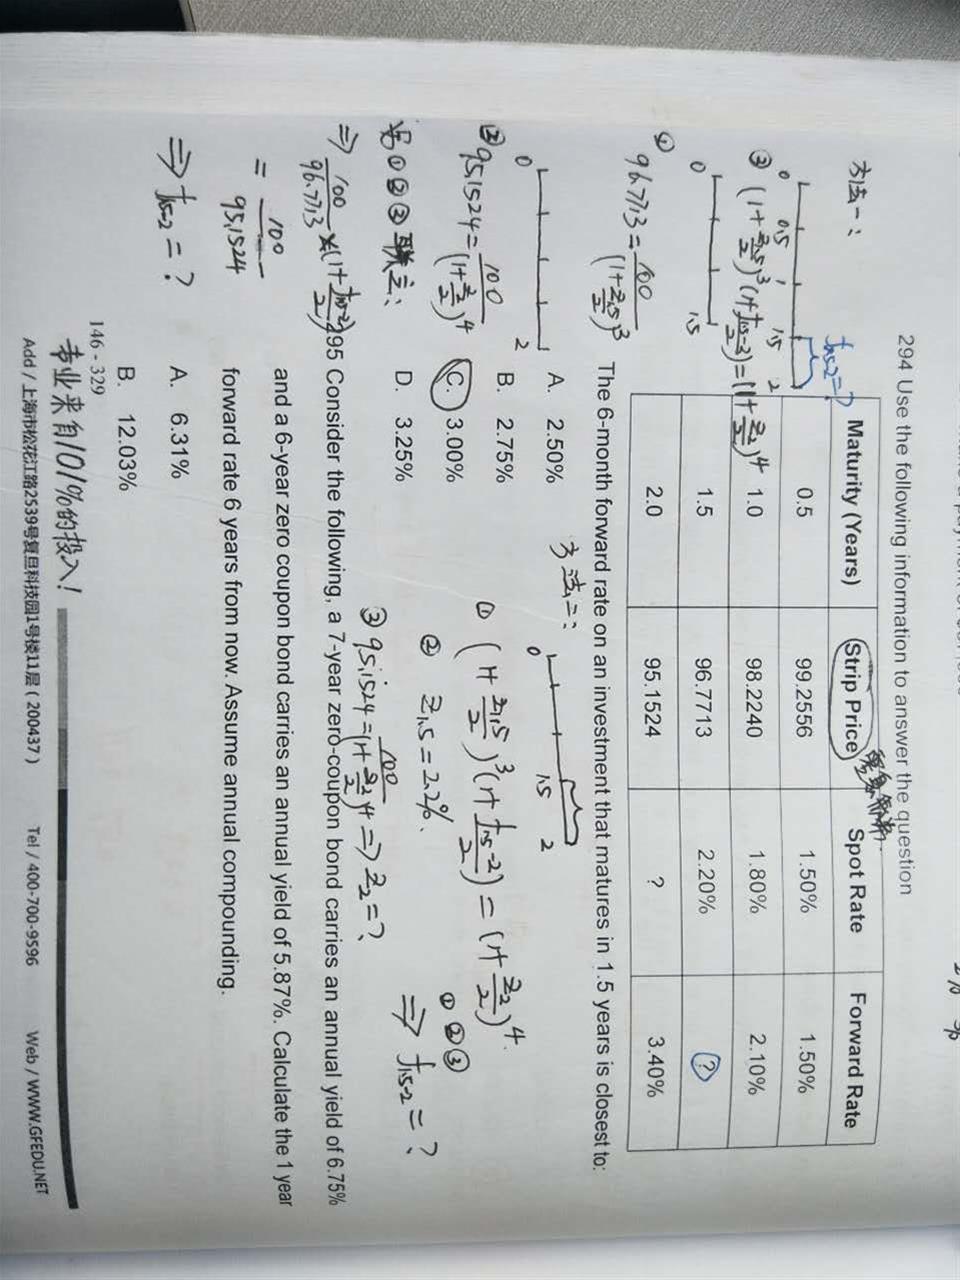 294 Use the following information to answer the question
Maturity (Years) Strip Price Spot Rate Forward Rate
0.5 99.2556 1.50% 1.50%
1.0 98.2240 1.80% 2.10%
1.5 96.7713 2.20% ?
2.0 95.1524 ? 3.40%
The 6-month forward rate on an investment that matures in 1.5 years is closest to:
A. 2.50%
B. 2.75%
C. 3.00%
D. 3.25%
方法一:
f1.5-2=?
0 0.5 1 1.5 2
③ (1+Z1.5/2)^3 (1+f1.5-2/2) = (1+Z2/2)^4
0 1.5
① 96.7713 = 100/(1+Z1.5/2)^3
0 2
② 95.1524 = 100/(1+Z2/2)^4
①②③联立:
⇒ 100/96.7713 × (1+f1.5-2/2)
= 100/95.1524
⇒ f1.5-2 = ?
方法二:
0 1.5 2
① (1+Z1.5/2)^3 (1+f1.5-2/2) = (1+Z2/2)^4.
② Z1.5 = 2.2%.
③ 95.1524 = 100/(1+Z2/2)^4 ⇒ Z2 = ?
①②③
⇒ f1.5-2 = ?
295 Consider the following, a 7-year zero-coupon bond carries an annual yield of 6.75%
and a 6-year zero coupon bond carries an annual yield of 5.87%. Calculate the 1 year
forward rate 6 years from now. Assume annual compounding.
A. 6.31%
B. 12.03%
146 - 329
专业来自101%的投入!
Add / 上海市松花江路2539号复旦科技园1号楼11层 ( 200437 ) Tel / 400-700-9596 Web / WWW.GFEDU.NET